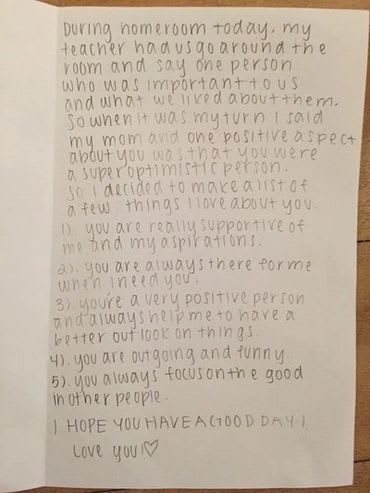 During homeroom today, my
teacher had us go around the
room and say one person
who was important to us
and what we liked about them.
So when it was my turn I said
my mom and one positive aspect
about you was that you were
a super optimistic person.
So I decided to make a list of
a few things I love about you.
1). you are really supportive of
me and my aspirations.
2). you are always there for me
when I need you.
3). you're a very positive person
and always help me to have a
better outlook on things.
4). you are outgoing and funny.
5). you always focus on the good
in other people.
I HOPE YOU HAVE A GOOD DAY!
Love you!♡